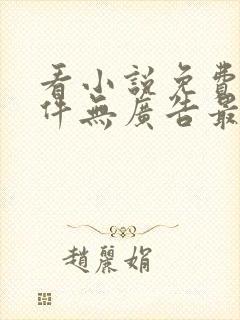 看小說免費
件無廣告最
趙麗娟